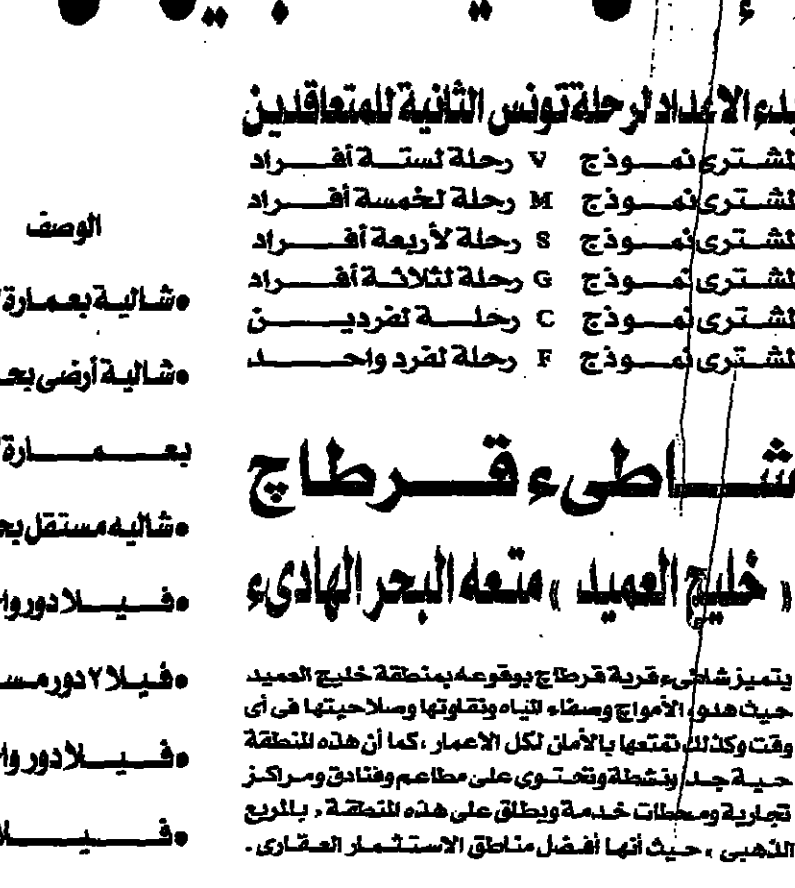 بدء الاعداد لرحلة تونس الثانية للمتعاقدين
لمشترى نمـوذج V رحلة لستـة أفـراد
لمشترى نمـوذج M رحلة لخمسة أفـراد
لمشترى نمـوذج S رحلة لأربعة أفـراد
لمشترى نمـوذج G رحلة لثلاثـة أفـراد
لمشترى نمـوذج C رحلـة لفرديـن
لمشترى نمـوذج F رحلة لفرد واحـد
شـاطىء قـرطاج
« خليج العميد » متعه البحر الهادىء
يتميز شاطىء قرية قرطاج بوقوعه بمنطقة خليج العميد
حيث هدوء الأمواج وصفاء المياه ونقاوتها وصلاحيتها فى أى
وقت وكذلك تمتعها بالأمان لكل الاعمار ، كما أن هذه المنطقة
حيـة جـدا ونشطة وتحتـوى على مطاعم وفنادق ومراكـز
تجارية ومحطات خـدمـة ويطلق على هذه المنطقـة « بالمربع
الذهبى » حيث أنها أفضل مناطق الاستثمار العقارى .
الوصف
●شاليـة بعمـارة
●شاليـة أرضى بحـ
بعـمـارة
●شاليه مستقل بحـ
●فـيـلا دور
●فيـلا ٢ دور
●فـيـلا دور
●فـيـلا